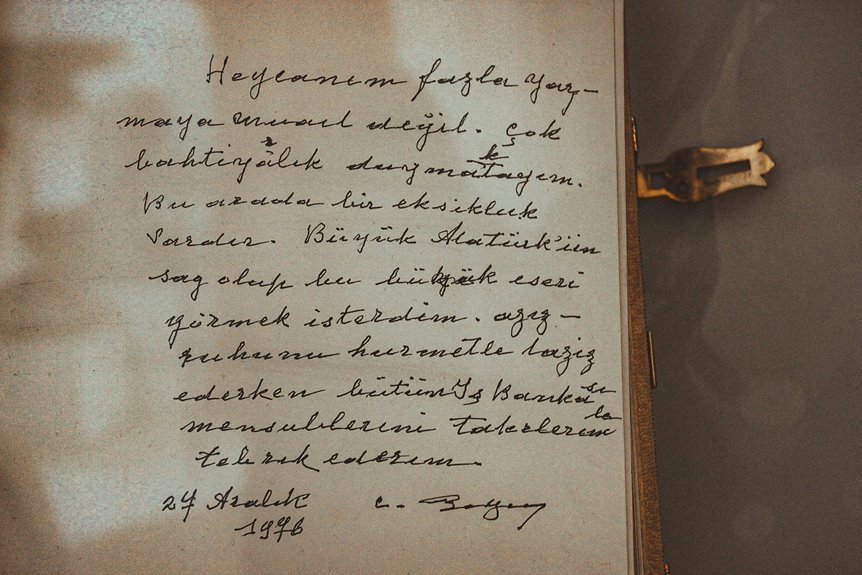 Heycanım fazla yaz-
maya muail değil. Çok
bahtiyarlık duymaktayım.
Bu arada bir eksiklik
vardır. Büyük Atatürk'ün
sağ olup bu büyük eseri
görmek isterdim. aziz
ruhunu hurmetle taziz
ederken bütün İş Bankası
mensublerini takrlerimle
tebrik ederim.
27 Aralık C. Bayar
1976